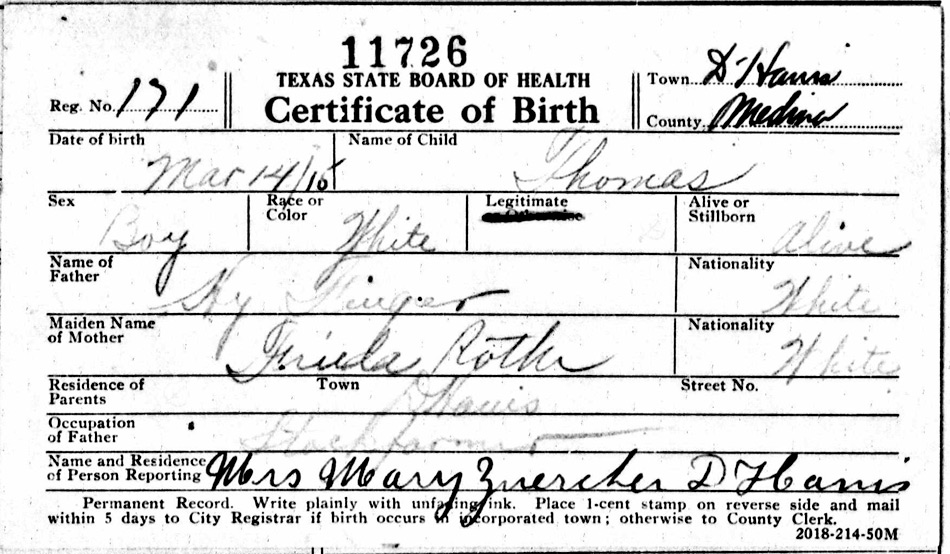 11726
TEXAS STATE BOARD OF HEALTH
Certificate of Birth
Reg. No. 171
Town D'Hanis
County Medina
Date of birth Mar 14/15
Name of Child Thomas
Sex Boy
Race or Color White
Legitimate or Otherwise
Alive or Stillborn Alive
Name of Father Hy Finger
Nationality White
Maiden Name of Mother Frieda Rothe
Nationality White
Residence of Parents
Town D'Hanis
Street No.
Occupation of Father Stock farmer
Name and Residence of Person Reporting Mrs Mary Zuercher D'Hanis
Permanent Record. Write plainly with unfading ink. Place 1-cent stamp on reverse side and mail
within 5 days to City Registrar if birth occurs in incorporated town; otherwise to County Clerk.
2018-214-50M